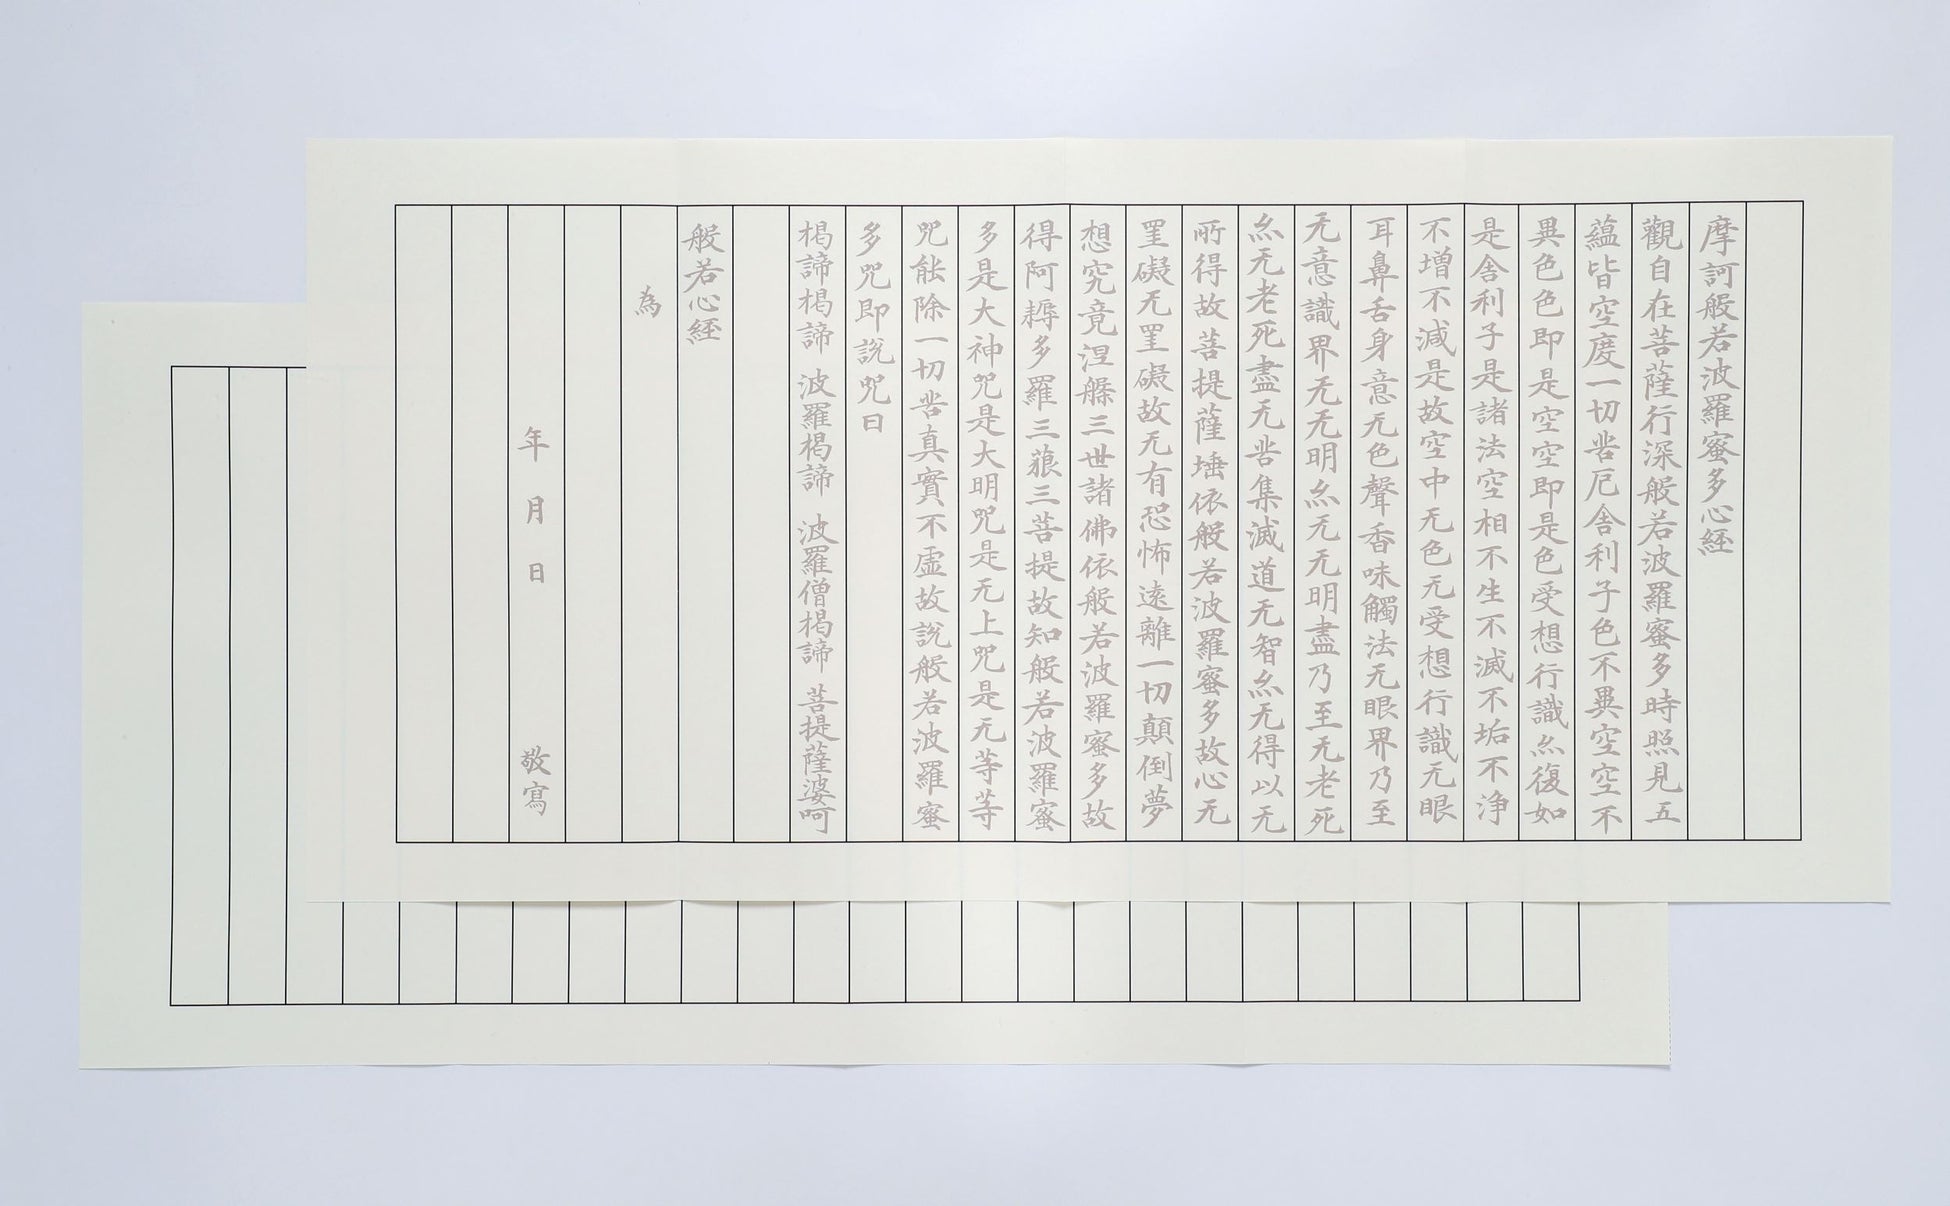 摩訶般若波羅蜜多心経
觀自在菩薩行深般若波羅蜜多時照見五
蘊皆空度一切苦厄舍利子色不異空空不
異色色即是空空即是色受想行識亦復如
是舍利子是諸法空相不生不滅不垢不浄
不增不減是故空中无色无受想行識无眼
耳鼻舌身意无色聲香味觸法无眼界乃至
无意識界无无明亦无无明盡乃至无老死
亦无老死盡无苦集滅道无智亦无得以无
所得故菩提薩埵依般若波羅蜜多故心无
罣礙无罣礙故无有恐怖遠離一切顛倒夢
想究竟涅槃三世諸佛依般若波羅蜜多故
得阿耨多羅三藐三菩提故知般若波羅蜜
多是大神咒是大明咒是无上咒是无等等
咒能除一切苦真實不虛故說般若波羅蜜
多咒即說咒曰
揭諦揭諦 波羅揭諦 波羅僧揭諦 菩提薩婆呵
般若心経
為
年 月 日 敬寫